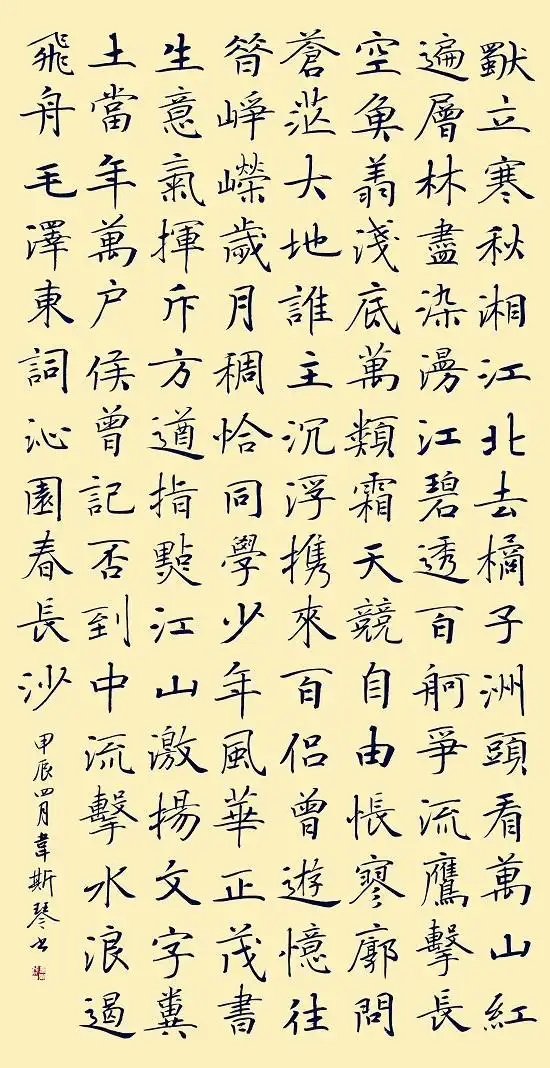 獨立寒秋湘江北去橘子洲頭看萬山紅
遍層林盡染漫江碧透百舸爭流鷹擊長
空魚翔淺底萬類霜天競自由悵寥廓問
蒼茫大地誰主沉浮携來百侣曾遊憶往
昔崢嶸歲月稠恰同學少年風華正茂書
生意氣揮斥方遒指點江山激揚文字糞
土當年萬户侯曾記否到中流擊水浪遏
飛舟毛澤東詞沁園春長沙
甲辰四月韋斯琴书